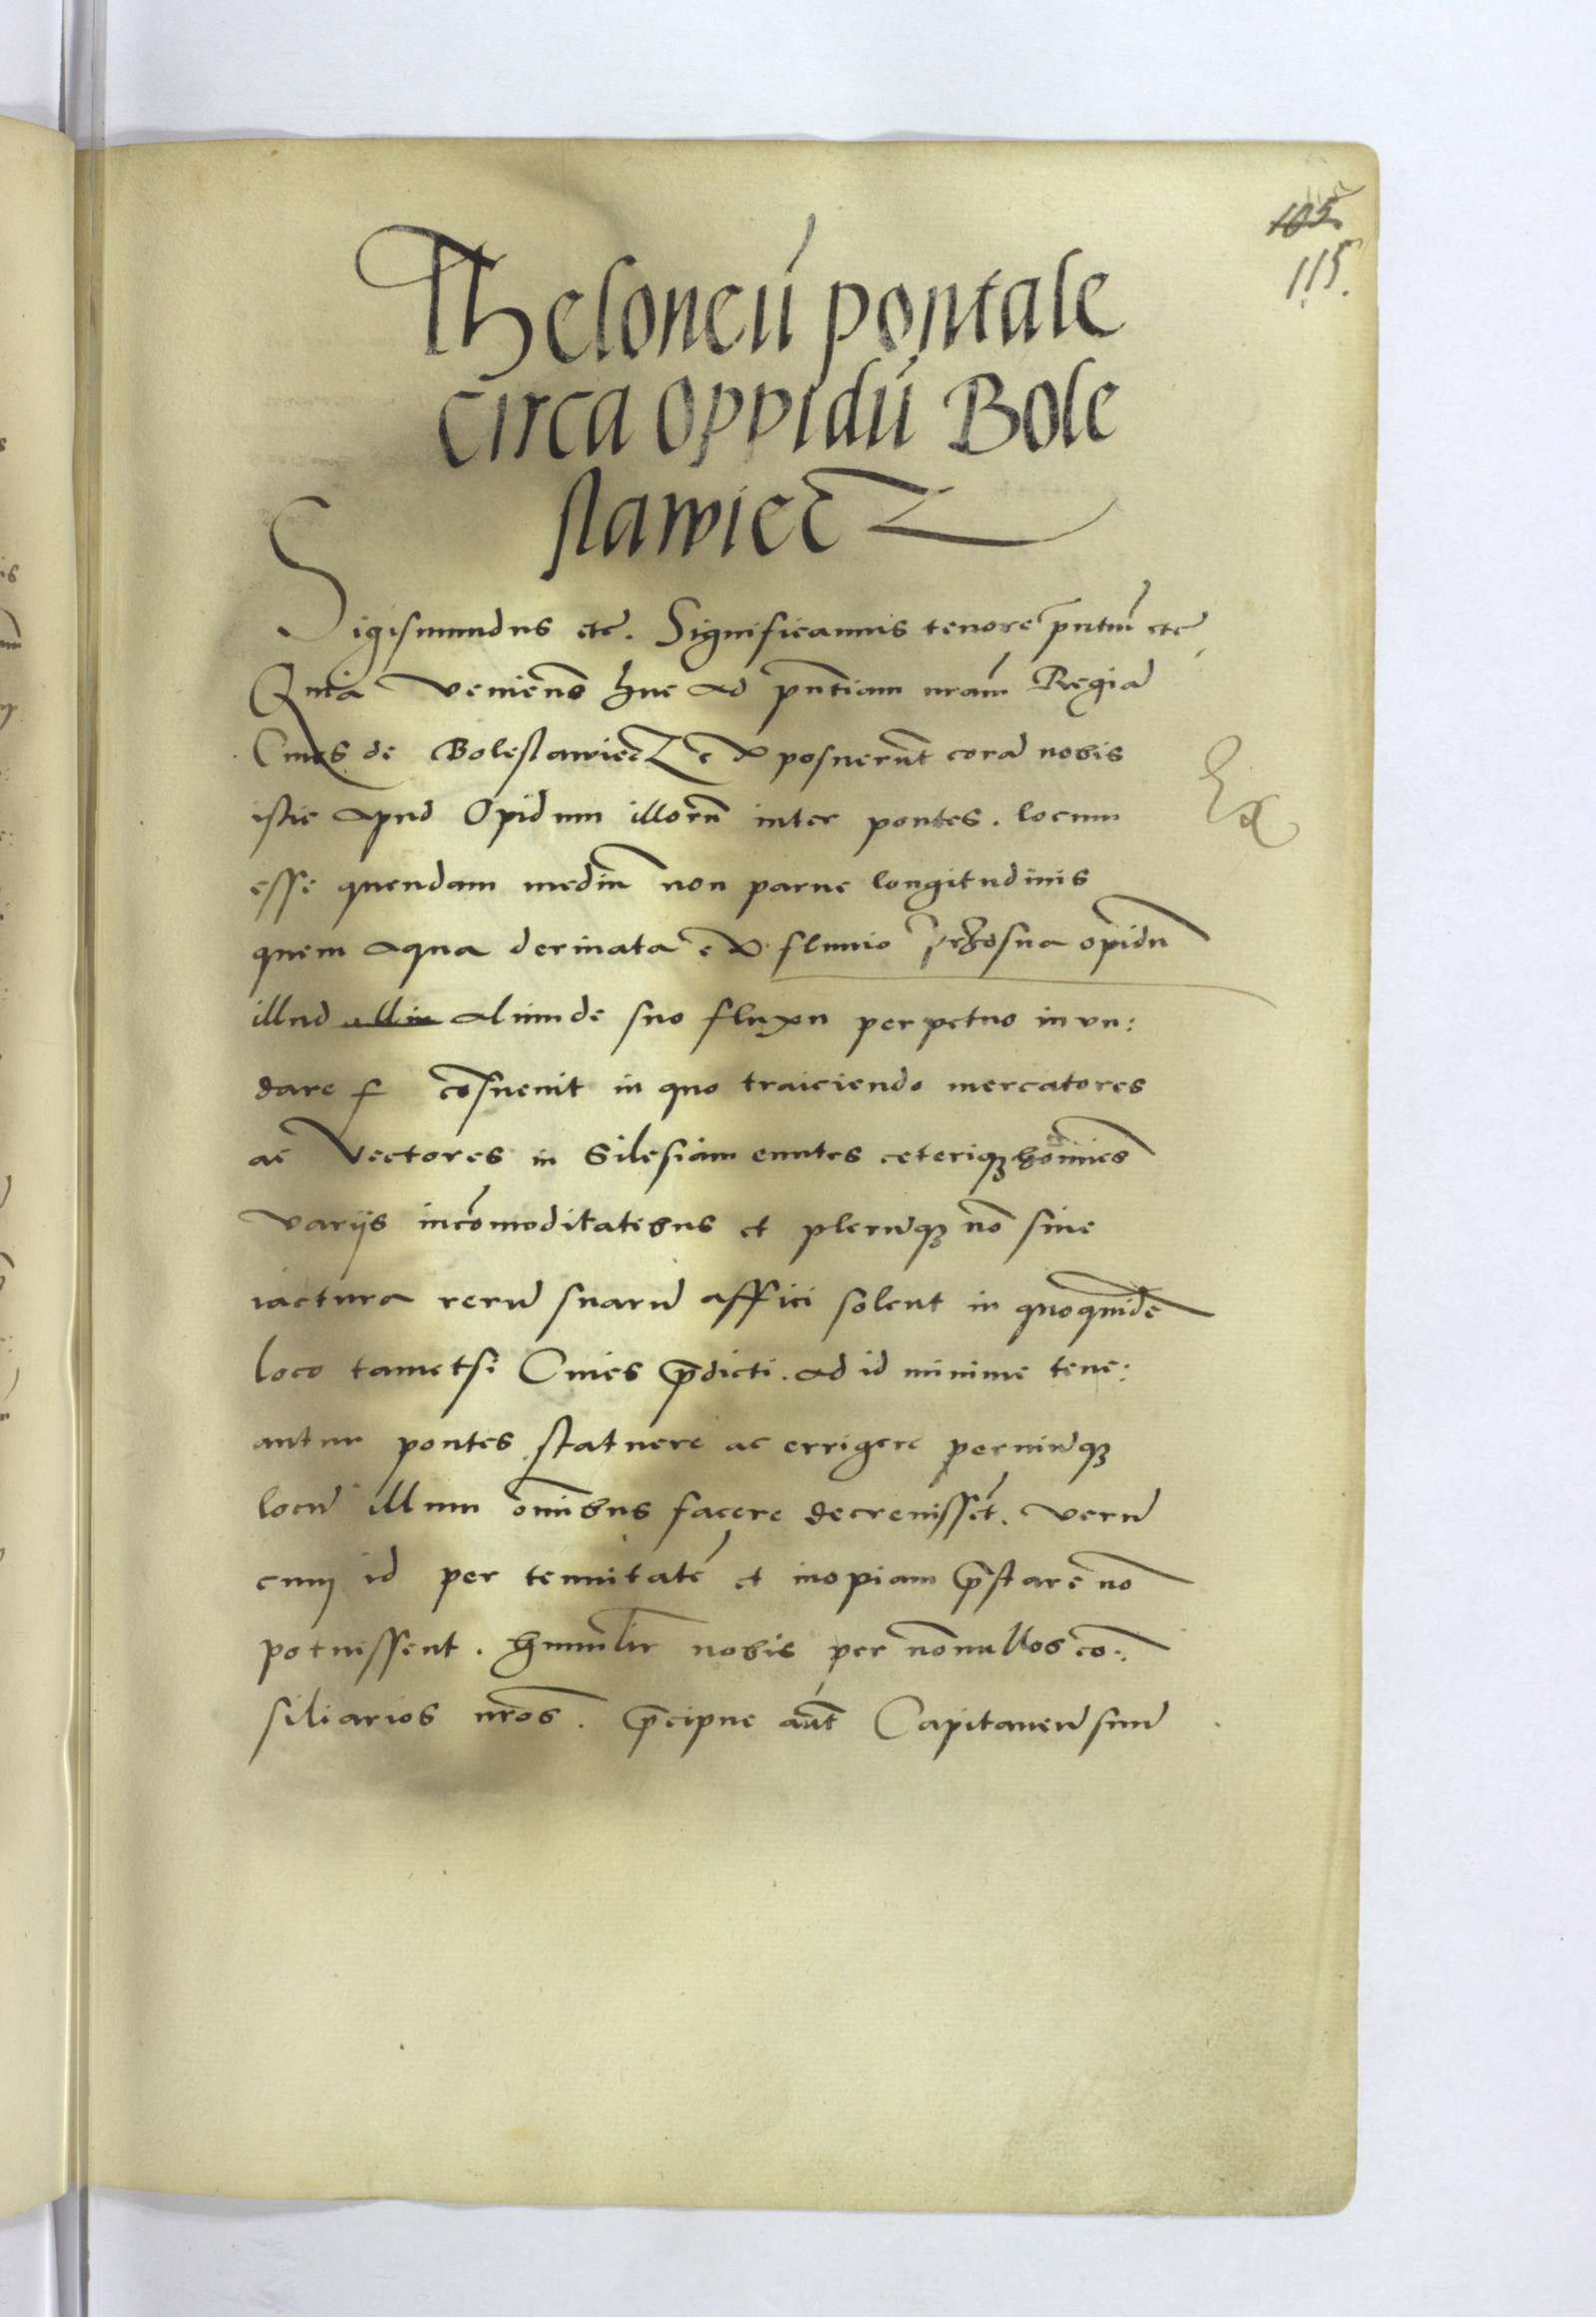 105
115.
Theloneū pontale
circa oppidū Bole
slawiecz
Sigismundus etc. Significamus tenore pntiū etc
Quia venien̄s huc ad pn̄tiam nrām Regiā
Ciues de Boleslawiecz exposuerūt corā nobis
istic apud Opidum illorū inter pontes. locum
esse quendam mediū non parue longitudinis
quem aqua deriuata ex fluuio Proszna opidū
illud aliunde suo fluxu perpetuo inun:
dare cōsueuit in quo traiciendo mercatores
ac Vectores in Silesiam euntes ceteriqȝ homines
varijs incōmoditatibus et plerūqȝ nō sine
iactura rerū suarū affici solent in quoquidē
loco tametsi Ciues p̄dicti. ad id minime tene:
antur pontes statuere ac errigere peruiūqȝ
locū illum om̄ibus facere decreuissēt. verū
cum id per tenuitatē et inopiam p̄stare nō
potuissent. humilīr nobis per nōnullos cō:
siliarios nrōs. p̄cipue aūt Capitaneū suū